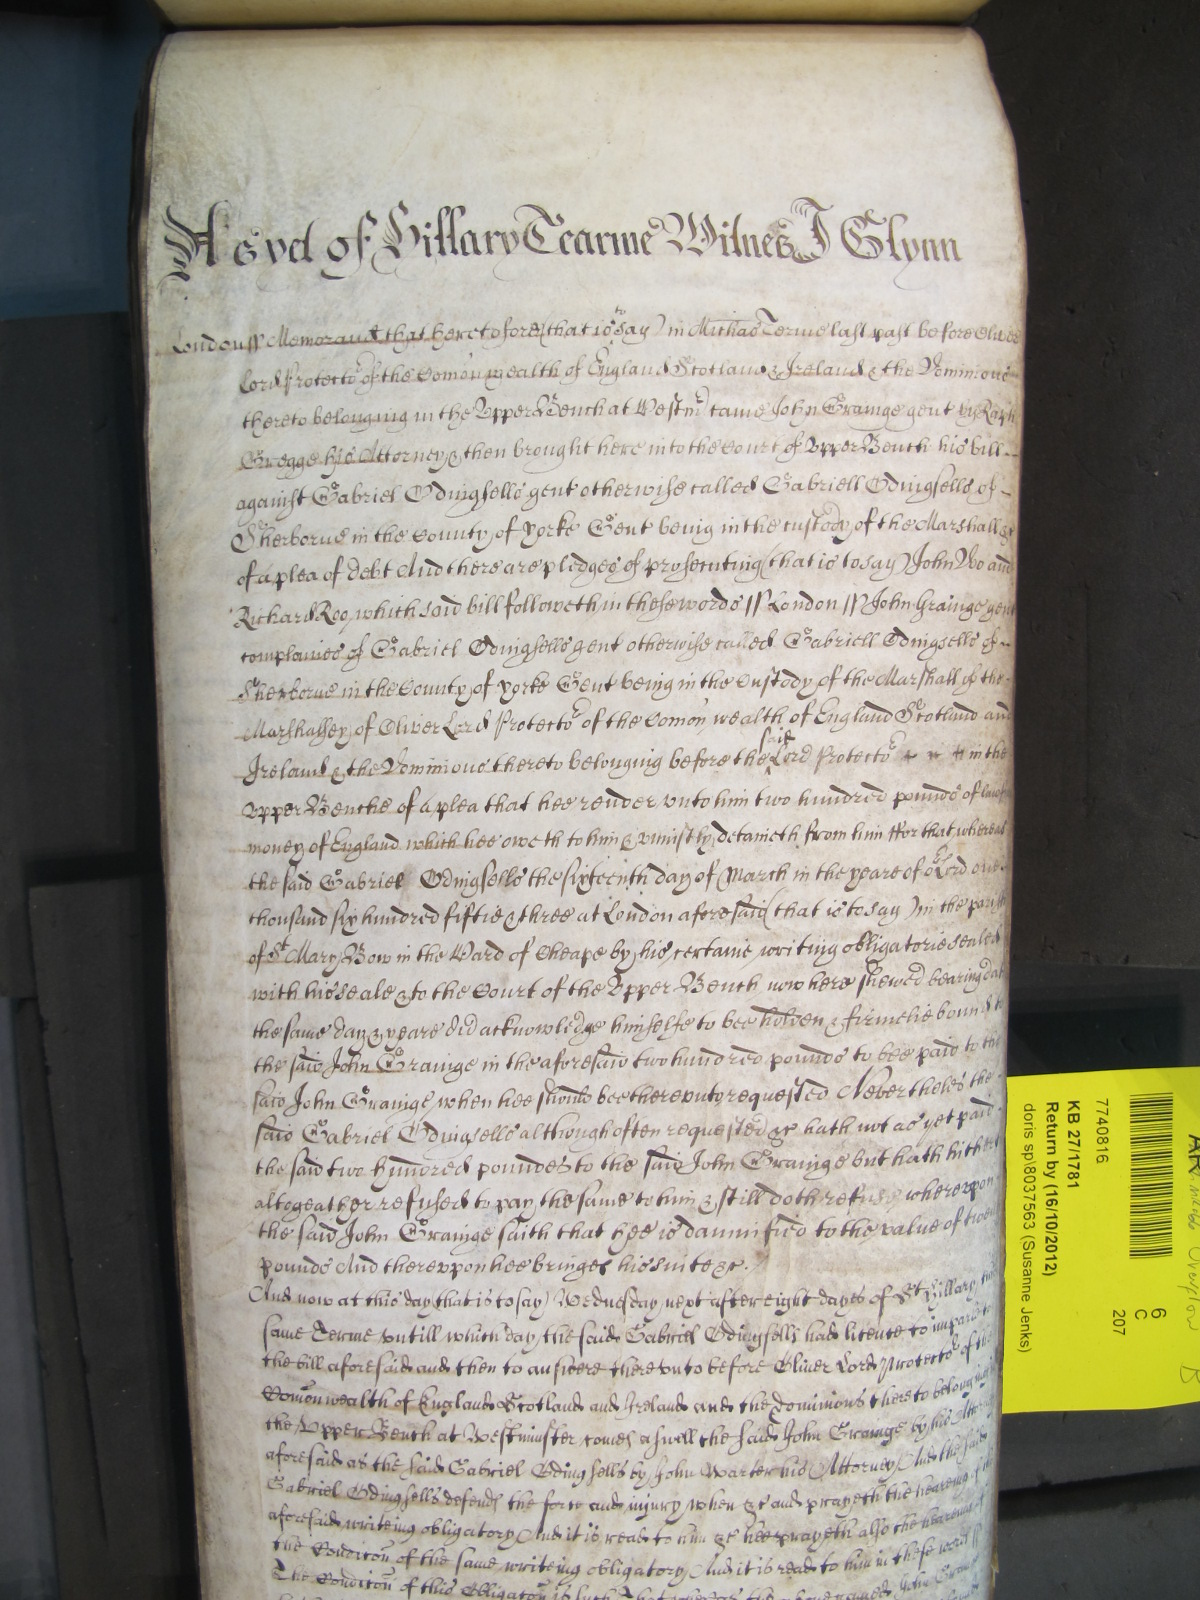 As yet of Hillary Tearme Witnes J Glynn
London ss Memorand that heretofore (that is to say) in Michas Terme last past before Oliver
Lord Protector of the Comon wealth of England Scotland & Ireland & the Dominions
thereto belonging in the Upper Bench at Westmr came John Grainge gent by Raph
Gregge his Attorney & then brought here into the Court of Upper Bench his bill
against Gabriel Odingsells gent otherwise called Gabriell Odingsells of
Sherborne in the County of yorke Gent being in the custody of the Marshall &c
of a plea of debt And there are pledges of prosecuting (that is to say) John Doo and
Richard Roo, which said bill followeth in these words ss London ss John Grainge gent
complaines of Gabriel Odingsells gent otherwise called Gabriell Odingsells of
Sherborne in the County of yorke Gent being in the Custody of the Marshall of the
Marshalsey of Oliver Lord Protector of the Comon wealth of England Scotland and
Ireland & the Dominions thereto belonging before the said Lord Protector in the
Upper Benche of a plea that hee render unto him two hundred pounds of lawfull
money of England which hee oweth to him & uniustly detaineth from him ffor that whereas
the said Gabriel Odingsells the sixteenth day of March in the yeare of or Lord one
thousand six hundred fiftie & three at London aforesaid (that is to say) in the parish
of St Mary Bow in the Ward of Cheape by his certaine writing obligatorie sealed
with his seale & to the Court of the Upper Bench now here shewed bearing date
the same day & yeare did acknowledge himselfe to bee holden & firmelie bound to
the said John Grainge in the aforesaid two hundred pounds to bee paid to the
said John Grainge when hee should bee thereunto requested Neverthelesse the
said Gabriel Odingsells although often requested &c hath not as yet paid
the said two hundred poundes to the said John Grainge but hath hitherto
altogeather refused to pay the same to him & still doth refuse whereupon
the said John Grainge saith that hee is damnified to the value of twenty
pounds And thereupon hee bringes his suite &c.
And now at this day that is to say) Wednesday next after eight dayes of St Hillary this
same Terme untill which day the said Gabriel Odingsells had licence to imparle to
the bill aforesaid and then to answere thereunto before Oliver Lord Protector of the
Comonwealth of England Scotland and Ireland and the dominions thereto belonging in
the Upper Bench at Westminster comes aswell the said John Grainge by his Attorney
aforesaid as the said Gabriel Odingsells by John Warter his Attorney And the said
Gabriel Odingsells defends the force and injury when &c and prayeth the heareing of the
aforesaid writeing obligatory And it is read to him &c hee prayeth also the heareing of
the Conditon of the same writeing obligatory And it is read to him in these words ss
The Conditon of this Obligaton is such That whereas the abovenamed John Grainge
7740816
KB 27/1781
Return by (16/10/2012)
doris sp\8037563 (Susanne Jenks)
6
C
207
Overflow B